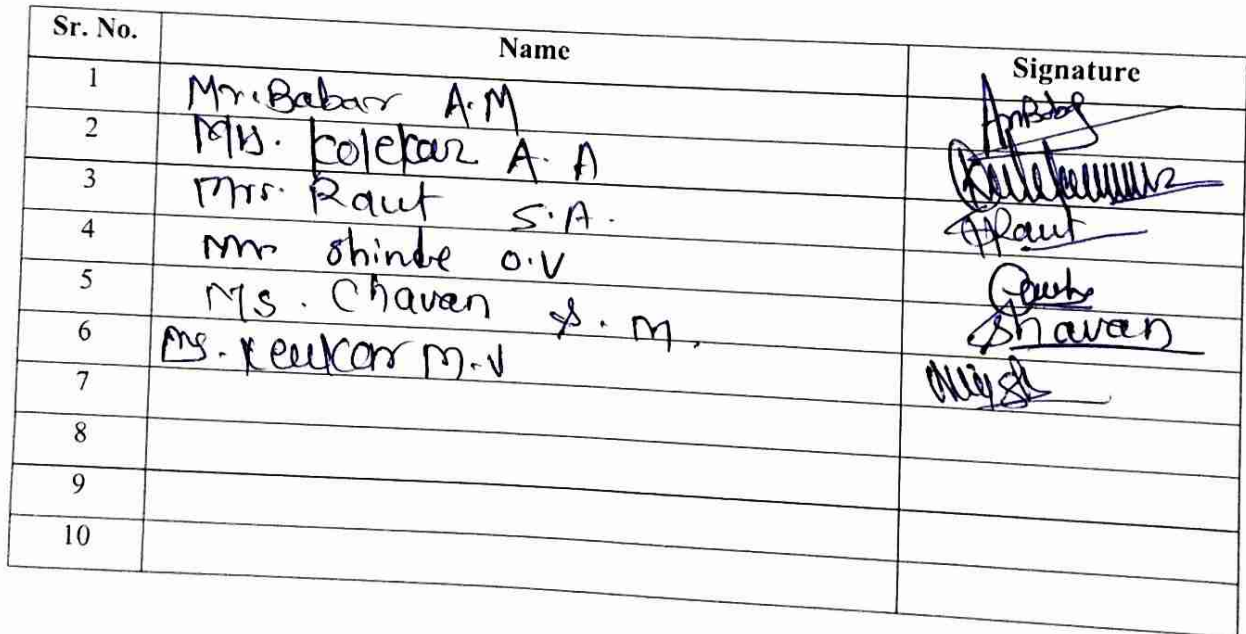 Sr. No. Name Signature
1 Mr. Babar A.M
2 Ms. Kolekar A. A
3 Mrs. Raut S.A. Raut
4 Mr Shinde O.V
5 Ms. Chavan S. M. Shavan
6 Ms. M.V
7
8
9
10